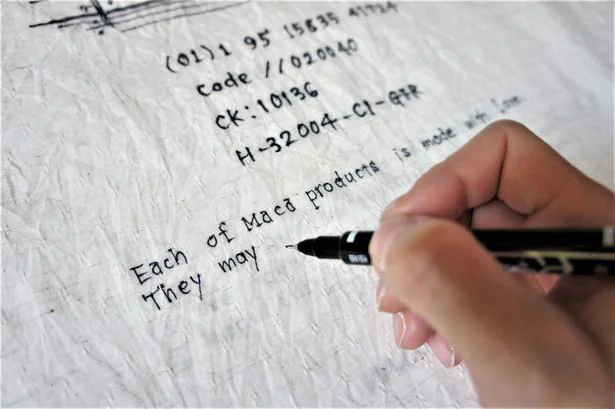 (01)1 95 15835 41724
Code //020040
CK:10136
H-32004-C1-GFR
Each of Maca products is made with Love.
They may